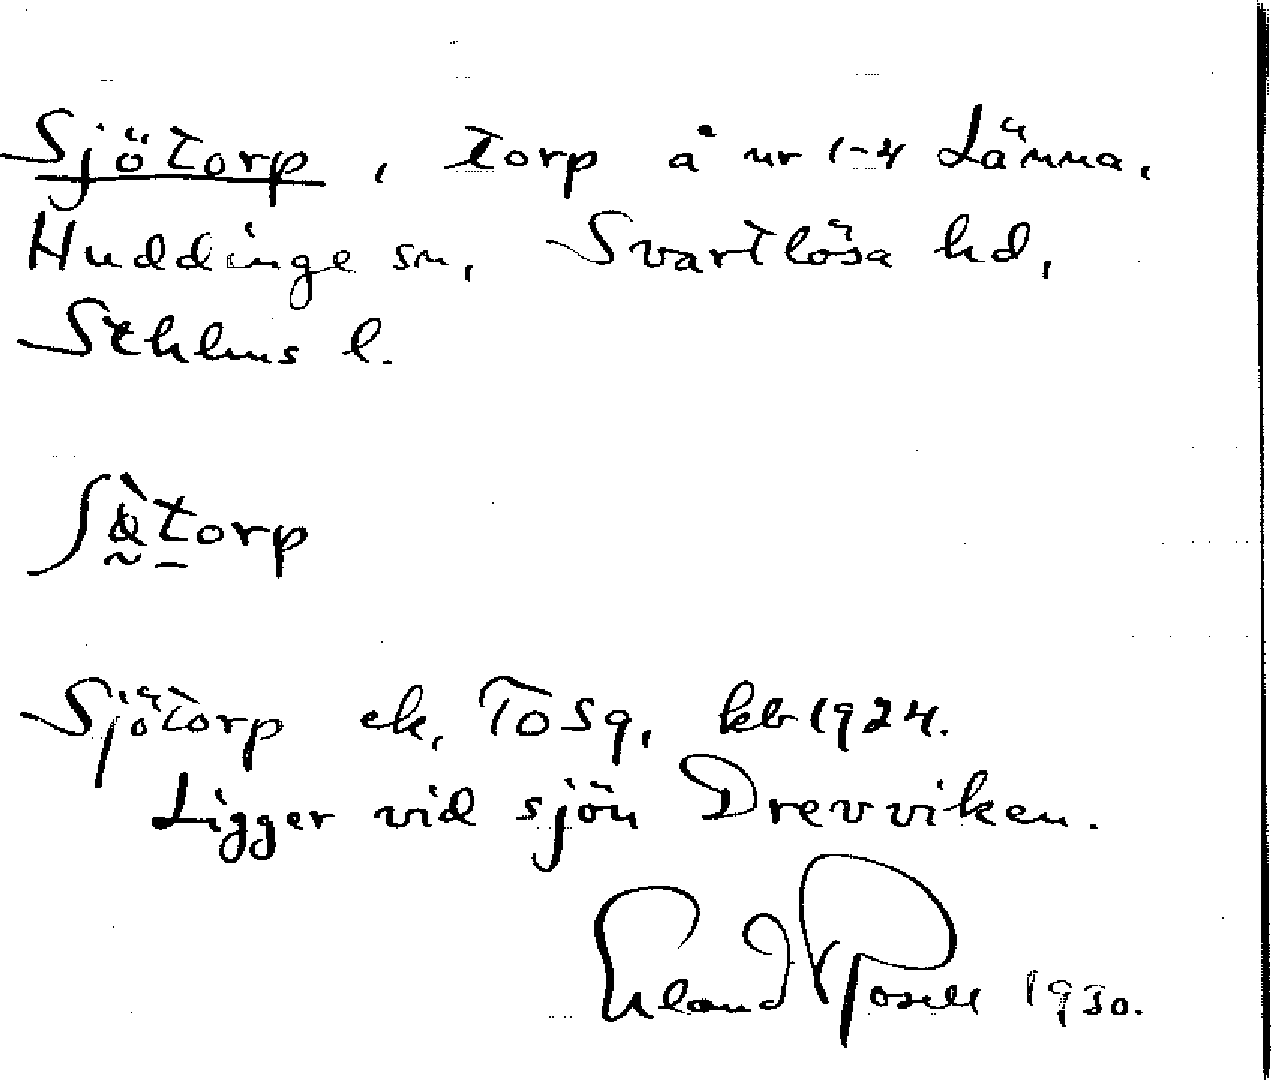 Sjötorp, torp å nr 1-4 Länna,
Huddinge sn, Svartlösa hd,
Sthlms l.
Sjötorp ek, To Sq, kb 1924.
Ligger vid sjön Drevviken.
Erland Rosell 1930.